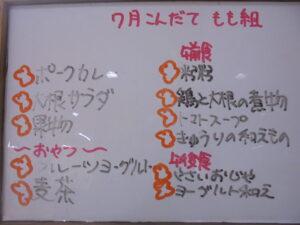 7月こんだて もも組
ポークカレ
大根サラダ
果物
〜おやつ〜
フルーツヨーグルト
麦茶
午前食
お粥
鶏と大根の煮物
トマトスープ
きゅうりの和えもの
午後食
やさいおじや
ヨーグルト和え